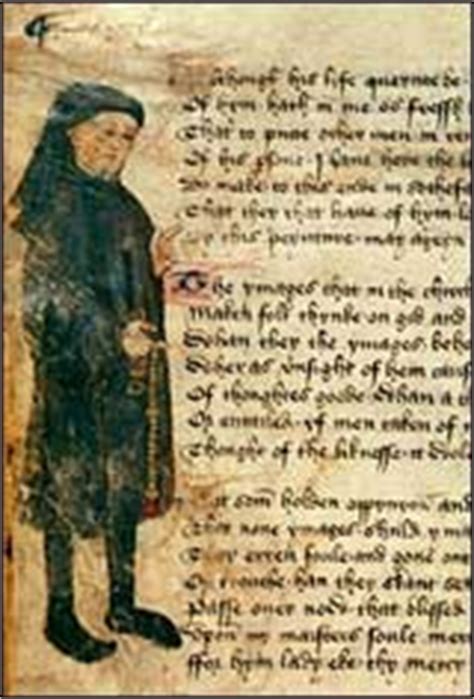 Athough his life queynte be
Of hym hath in me so fressh
That to putte other men in re
Of his psone I haue here the l
Do make to this ende in sothef
That they that haue of hym l
By this peynture may ageyn

The ymages that in the chirch
Maken folk thynke on god and
Whan they the ymages beho
Wheras unsight of hem caus
Of thoughtes goode Whan a t
Or entailed yf men taken of
Thought of the liknesse it wole

som holden oppynyon and
That none ymages shuld ym
They erren foule and gone out
Of trouthe han they skant se
Passe over nowe that blessed
Upon my maisters soule mer
ffor hym lady eke thy mercy